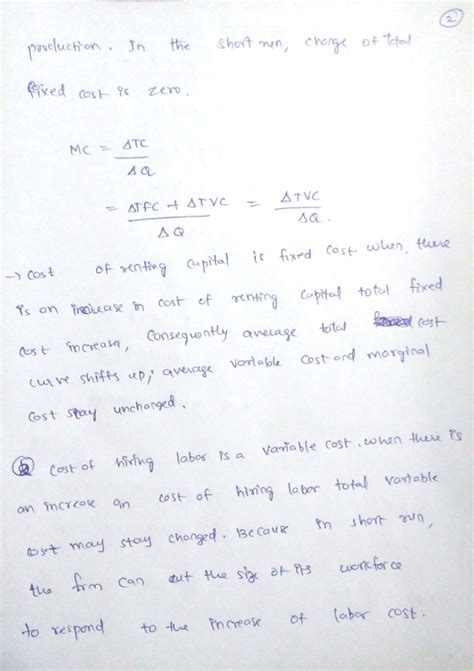 2
production. In the short run, change of Total
fixed cost is zero.
MC = ΔTC / ΔQ
= ΔTFC + ΔTVC / ΔQ = ΔTVC / ΔQ.
→ cost of renting capital is fixed cost when there
is an increase in cost of renting capital total fixed
cost increase, Consequently average total cost
curve shifts up, average variable cost and marginal
cost stay unchanged.
b cost of hiring labor is a variable cost. when there is
an increase in cost of hiring labor total variable
cost may stay changed. Because in short run,
the firm can cut the size of its workforce
to respond to the increase of labor cost.